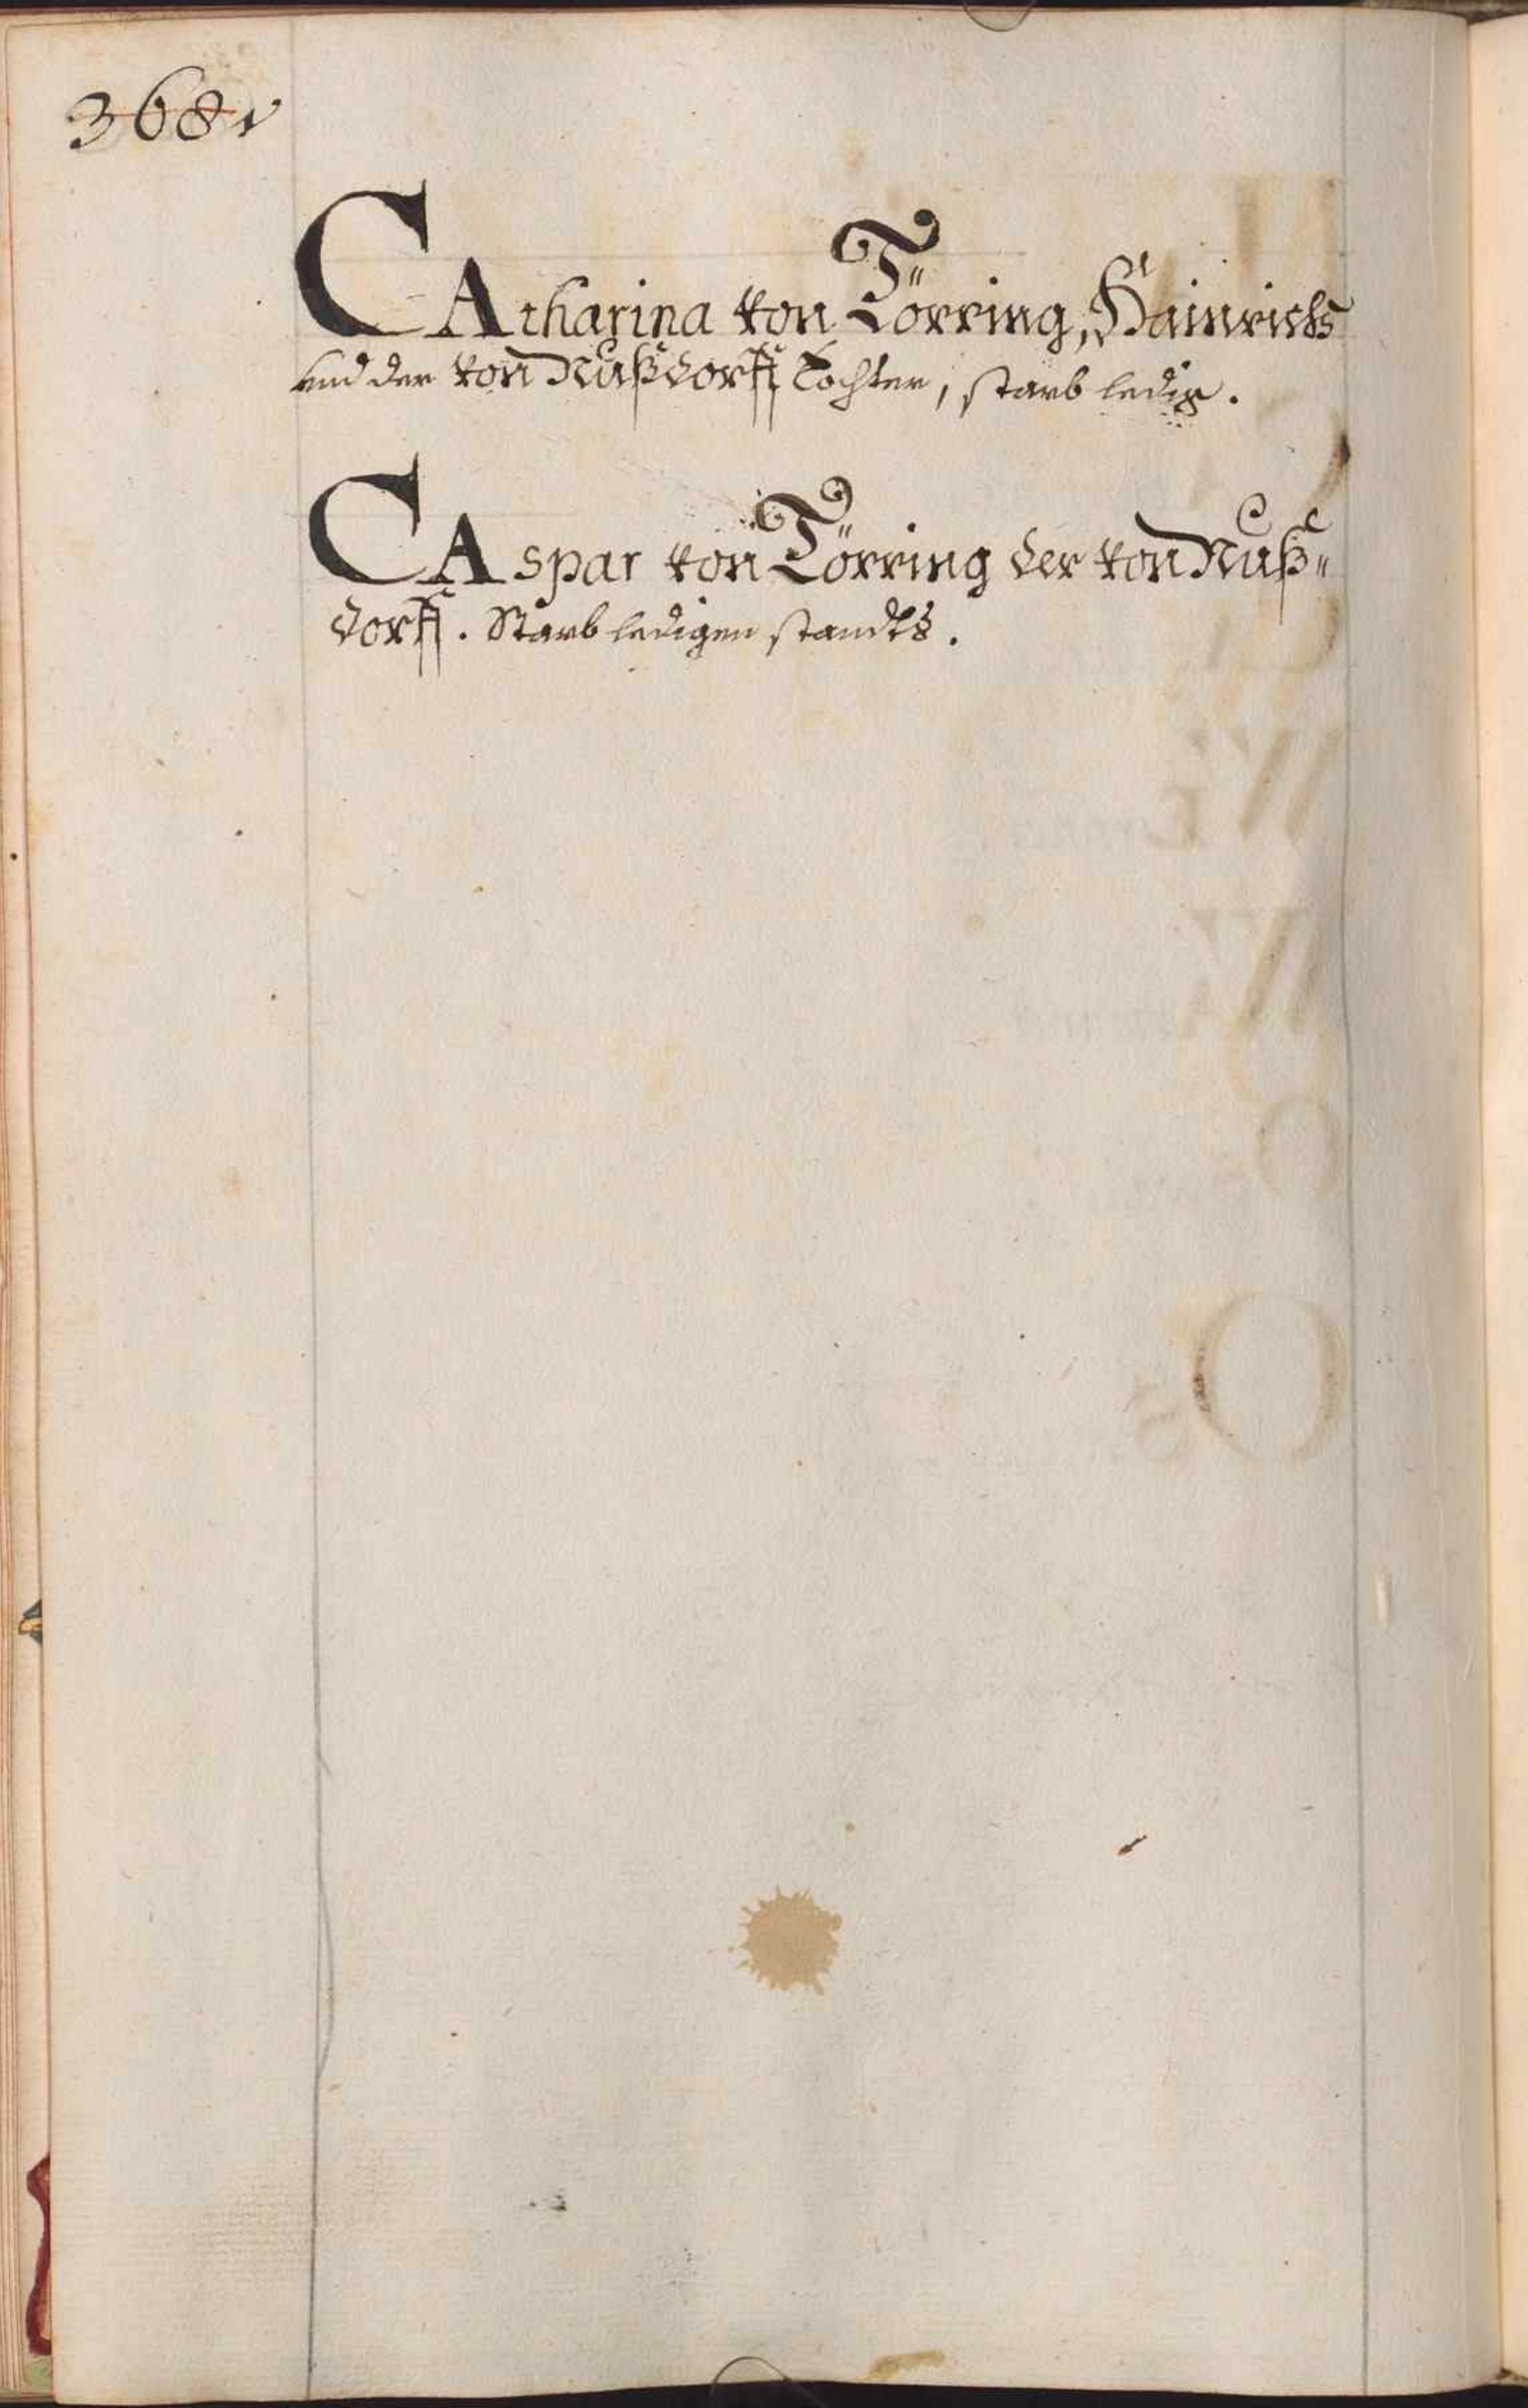 368v
CAtharina von Törring, Hainrichs
vnd der von Nußdorff Tochter, starb ledig.
CAspar von Törring der von Nuß"
dorff. Starb ledigen standts.